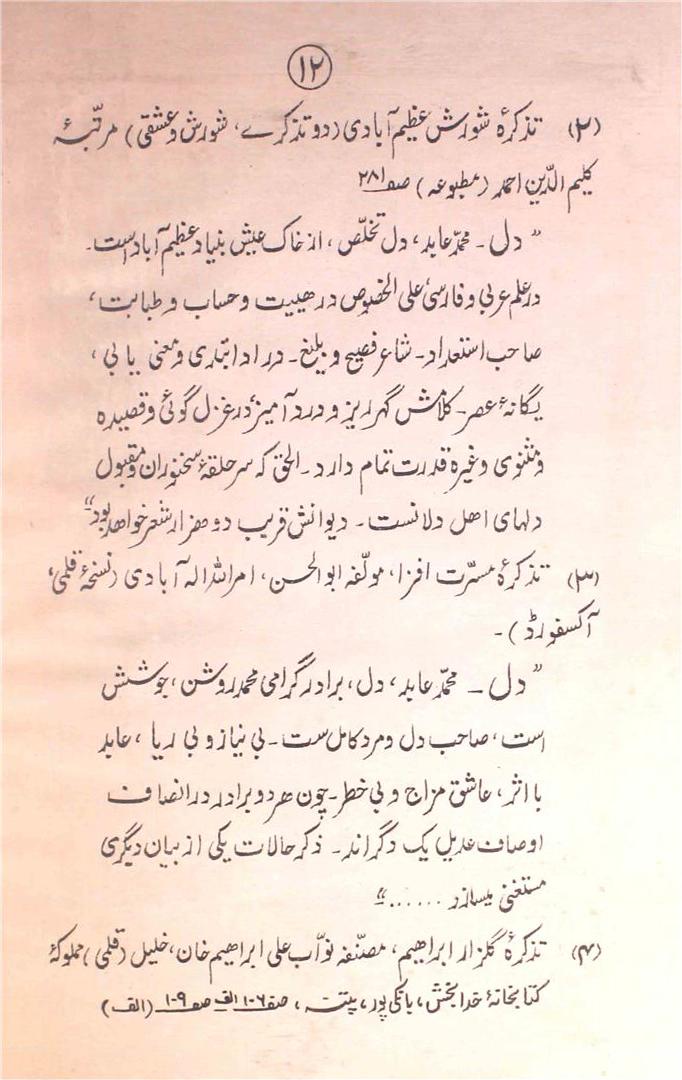 ۱۲
(۲) تذکرۂ شورش عظیم آبادی (دو تذکرے، شورش و عشقی) مرتّبۂ
کلیم الدّین احمد (مطبوعہ) صفہ ۲۸۱
" دل ۔ محمّد عابد، دل تخلّص، از خاک عیش بنیاد عظیم آباد است۔
در علم عربی و فارسی علی الخصوص در هیبیت و حساب و طبابت،
صاحب استعداد۔ شاعر فصیح و بلیغ۔ در ادابندی و معنی یابی،
یگانۂ عصر۔ کلامش گہر ریز و درد آمیز در غزل گوئی و قصیدہ
و مثنوی وغیرہ قدرت تمام دارد۔ الحق کہ سر حلقۂ سخنوران و مقبول
دلہای اهل دلانست۔ دیوانش قریب دو هزار شعر خواهد بود"
(۳) تذکرۂ مسرّت افزا، مولّفہ ابوالحسن، امراللہ الہ آبادی (نسخۂ قلمی،
آکسفورڈ)۔
" دل ۔ محمّد عابد، دل، برادر گرامی محمد روشن، جوشش
است، صاحب دل و مرد کامل ست۔ بی نیاز و بی ریا، عابد
با اثر، عاشق مزاج و بی خطر۔ چون هر دو برادر در انصاف
اوصاف عدیل یک دگراند۔ ذکر حالات یکی از بیان دیگری
مستغنی میسازد ......"
(۴) تذکرۂ گلزار ابراهیم، مصنّفہ نوّاب علی ابراهیم خان، خلیل (قلمی) مملوکۂ
کتابخانۂ خدا بخش، بانکی پور، پٹنہ، صفہ ۱۰۶ الف صفہ ۱۰۹ (الف)